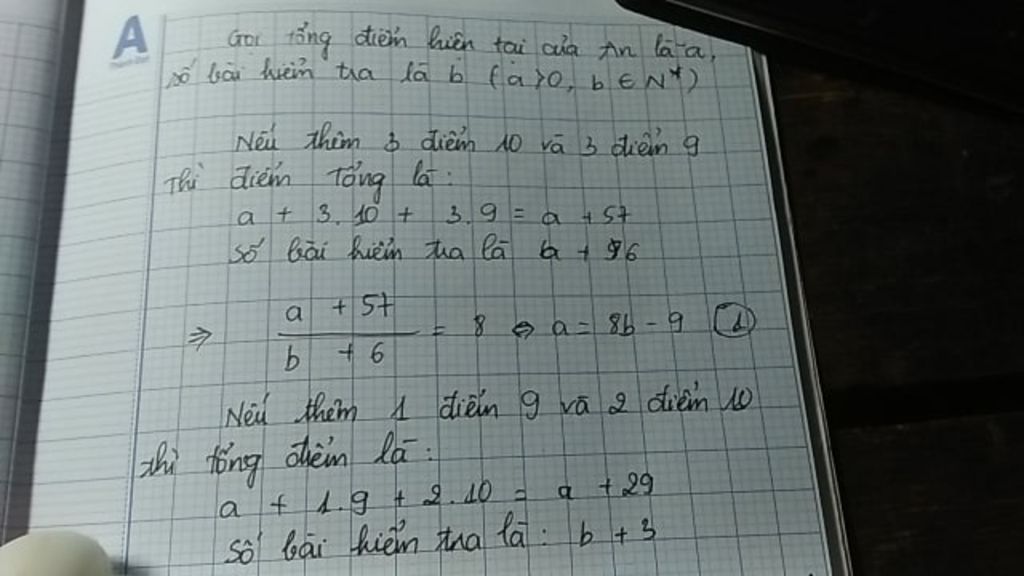 A
Gọi tổng điểm hiện tại của An là a,
số bài kiểm tra là b (a > 0, b ∈ N*)
Nếu thêm 3 điểm 10 và 3 điểm 9
thì điểm tổng là:
a + 3.10 + 3.9 = a + 57
Số bài kiểm tra là b + 6
⇒ (a + 57)/(b + 6) = 8 ⇔ a = 8b - 9 (1)
Nếu thêm 1 điểm 9 và 2 điểm 10
thì tổng điểm là:
a + 1.9 + 2.10 = a + 29
Số bài kiểm tra là: b + 3